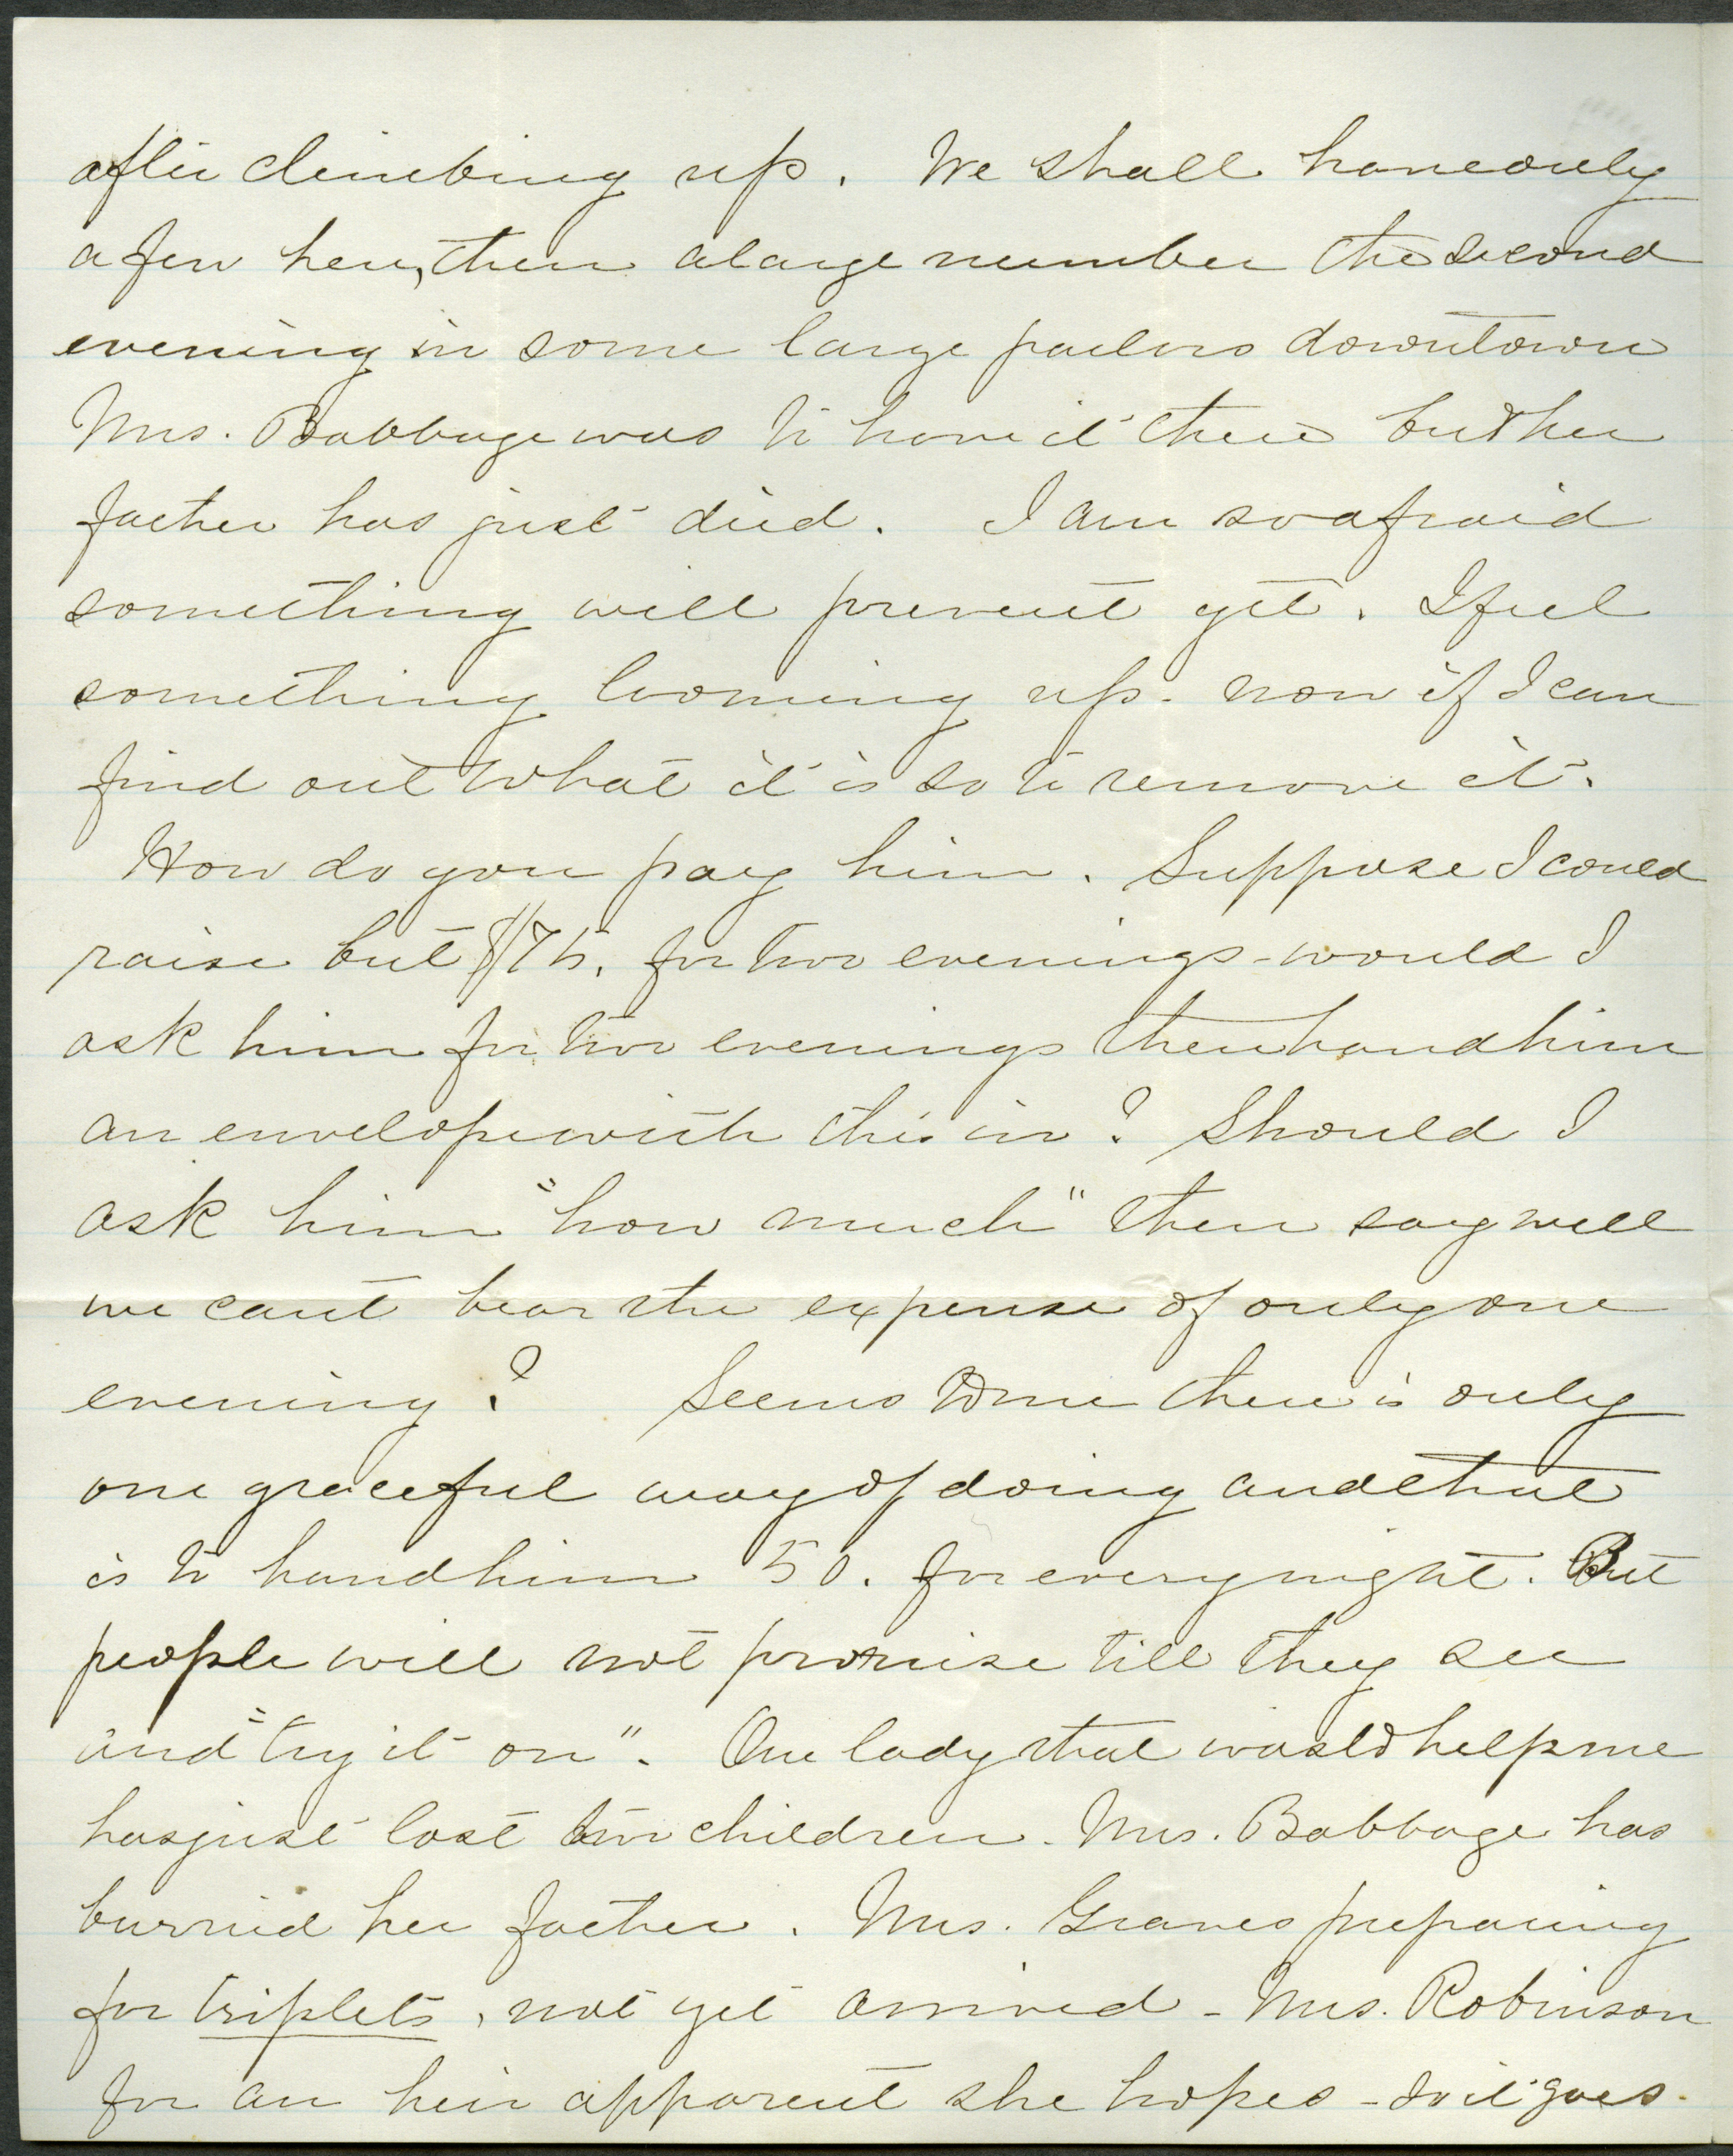 after climbing up. We shall have only
a few here, then a large number the second
evening in some large parlors downtown
Mrs. Babbage was to have it there but her
father has just died. I am so afraid
something will prevent yet. I feel
something looming up - now if I can
find out what it is so to remove it.
How do you pay him. Suppose I could
raise but $75. for two evenings - would I
ask him for two evenings then hand him
an envelope with this in? Should I
ask him "how much" then say well
we cant bear the expense of only one
evening? Seems to me there is only
one graceful way of doing and that
is to hand him 50. for every night. But
people will not promise till they see
and "try it on". One lady that would help me
has just lost two children. Mrs. Babbage has
burried her father. Mrs. Graves preparing
for triplets, not yet arrived - Mrs. Robinson
for an heir apparent she hopes - so it goes.